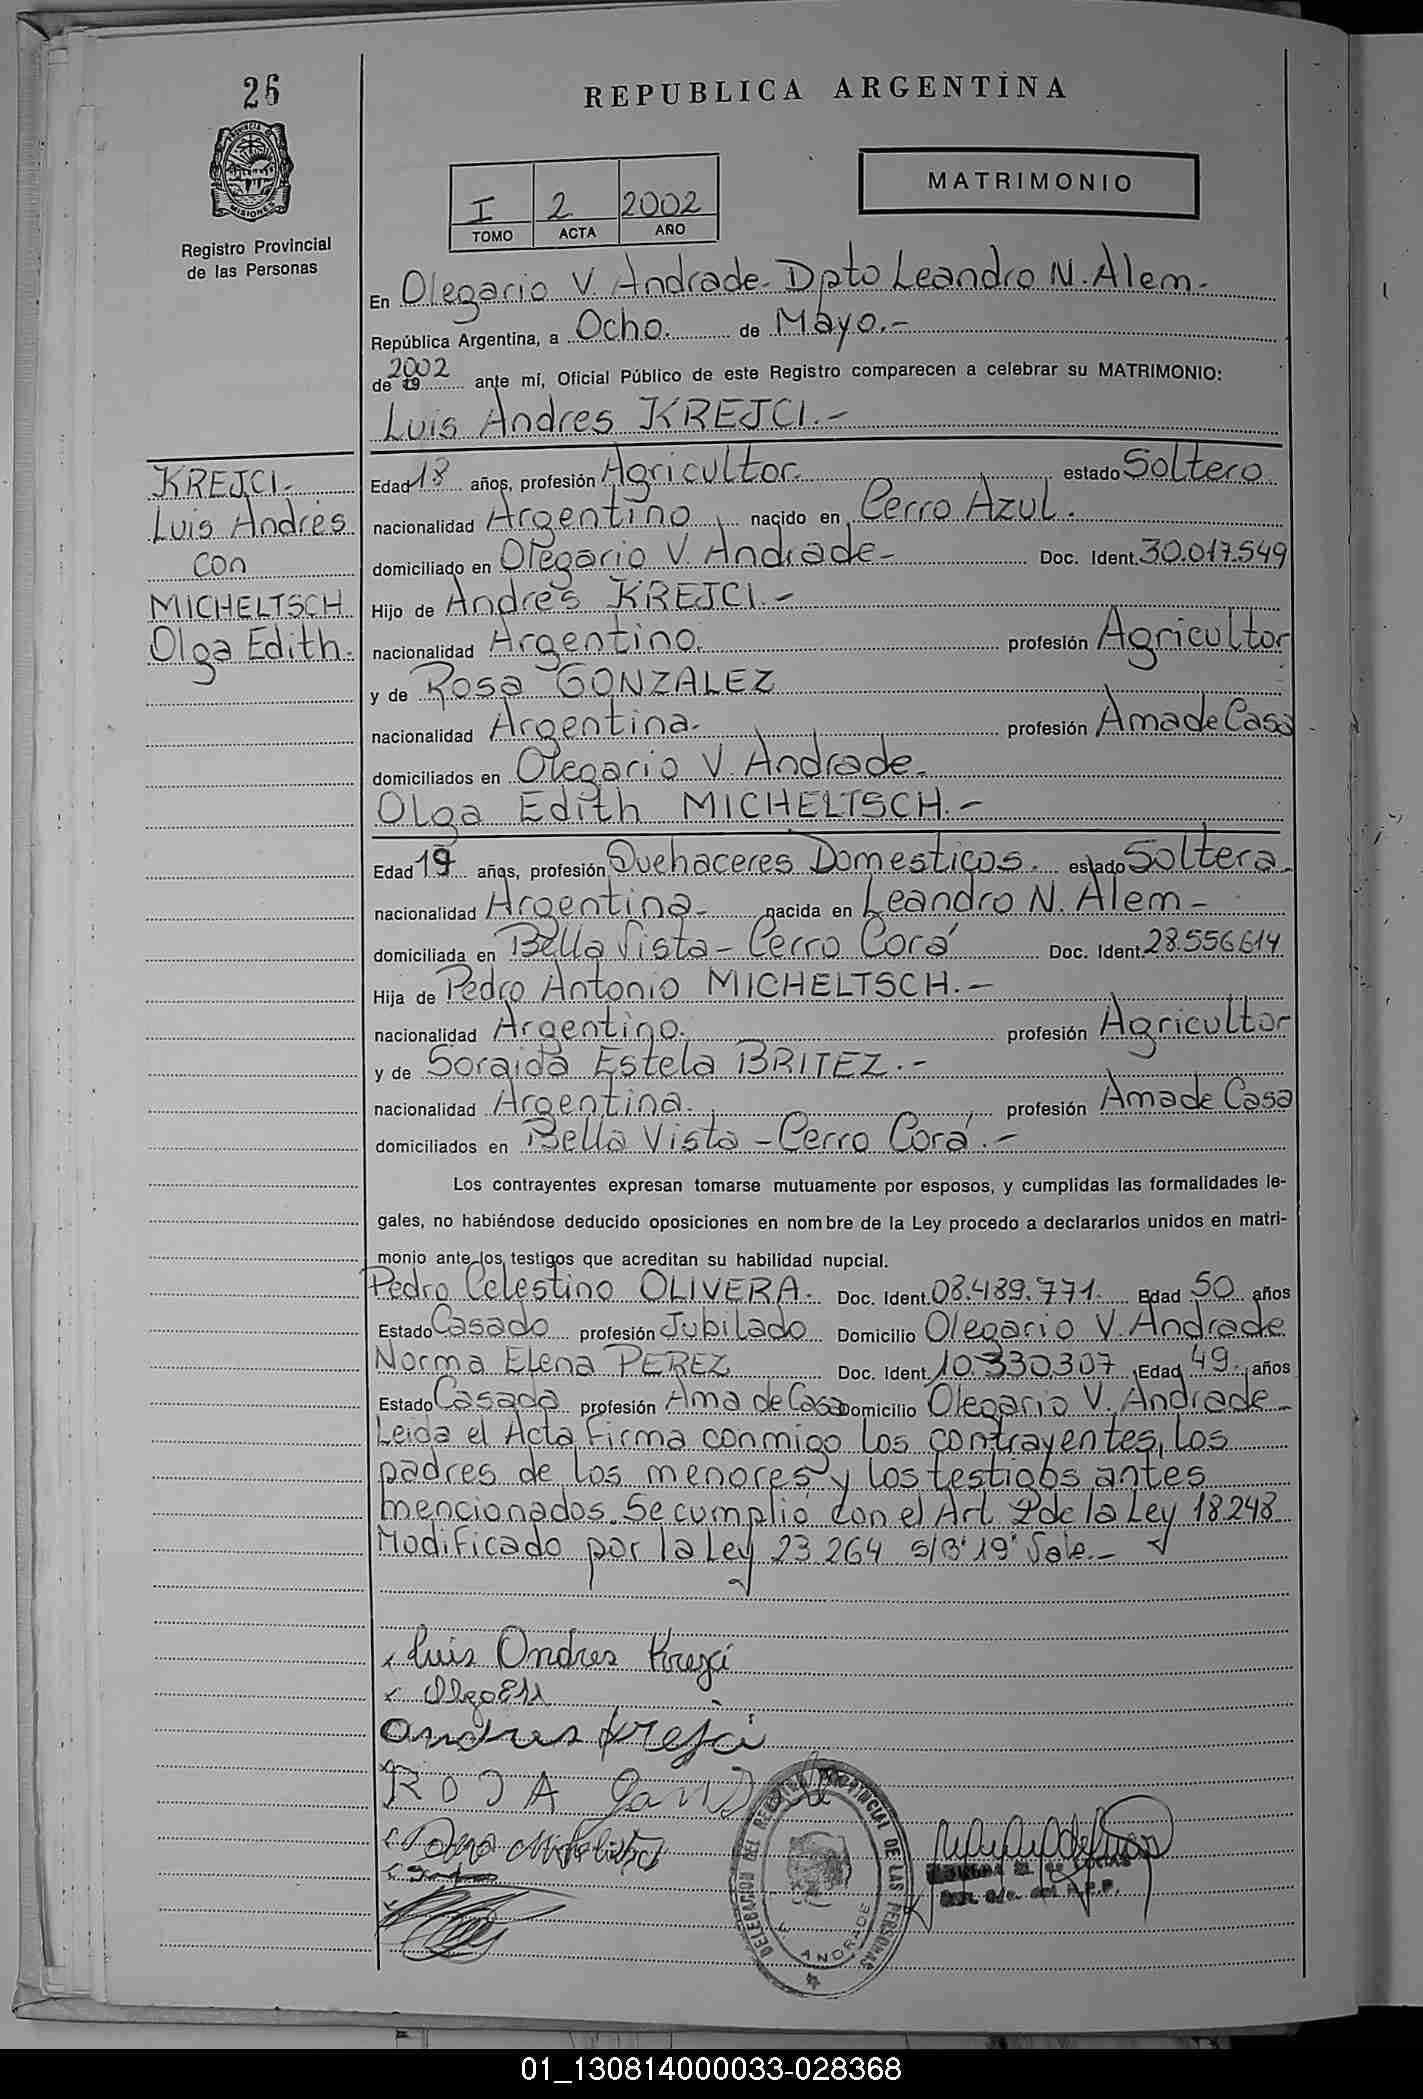 26
REPUBLICA ARGENTINA
PROVINCIA DE
MISIONES
Registro Provincial
de las Personas
I 2 2002
TOMO ACTA AÑO
MATRIMONIO
En Olegario V. Andrade. Dpto Leandro N. Alem.-
República Argentina, a Ocho. de Mayo.-
de 19 2002 ante mí, Oficial Público de este Registro comparecen a celebrar su MATRIMONIO:
Luis Andres KREJCI.-
KREJCI.-
Luis Andrés
con
MICHELTSCH
Olga Edith.
Edad 18 años, profesión Agricultor. estado Soltero.
nacionalidad Argentino nacido en Cerro Azul.
domiciliado en Olegario V. Andrade- Doc. Ident. 30.017.549
Hijo de Andrés KREJCI.-
nacionalidad Argentino. profesión Agricultor
y de Rosa GONZALEZ
nacionalidad Argentina- profesión Ama de Casa
domiciliados en Olegario V. Andrade.
Olga Edith MICHELTSCH.-
Edad 19 años, profesión Quehaceres Domesticos. estado Soltera-
nacionalidad Argentina- nacida en Leandro N. Alem-
domiciliada en Bella Vista- Cerro Corá Doc. Ident. 28.556.614
Hija de Pedro Antonio MICHELTSCH.-
nacionalidad Argentino. profesión Agricultor
y de Soraida Estela BRITEZ.-
nacionalidad Argentina. profesión Ama de Casa
domiciliados en Bella Vista-Cerro Corá.-
Los contrayentes expresan tomarse mutuamente por esposos, y cumplidas las formalidades le-
gales, no habiéndose deducido oposiciones en nombre de la Ley procedo a declararlos unidos en matri-
monio ante los testigos que acreditan su habilidad nupcial.
Pedro Celestino OLIVERA. Doc. Ident. 08.489.771. Edad 50 años
Estado Casado profesión Jubilado Domicilio Olegario V. Andrade
Norma Elena PEREZ Doc. Ident. 10.330307 Edad 49. años
Estado Casada profesión Ama de Casa Domicilio Olegario V. Andrade-
Leida el Acta, Firma conmigo los contrayentes, los
padres de los menores y los testigos antes
mencionados. Se cumplió con el Art. 2 de la Ley 18.248
Modificado por la Ley 23 264 s/B "19" Vale.-
Luis Andres Krejci
Olga
Andres Krejci
ROSA
DELEGACION DEL REGISTRO PROVINCIAL DE LAS PERSONAS
ANDRADE
01_130814000033-028368